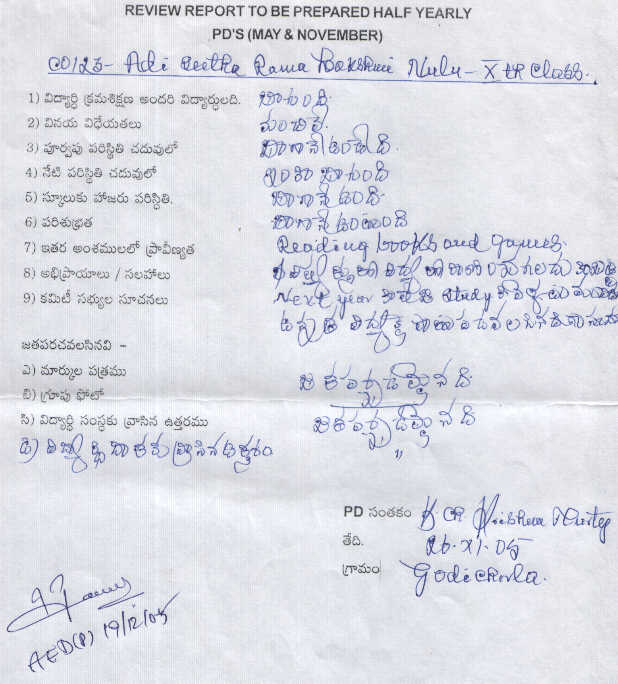 REVIEW REPORT TO BE PREPARED HALF YEARLY
PD'S (MAY & NOVEMBER)
00123- Adi Seetha Rama Lakshmi Nulu - X th Class.
1) విద్యార్థి క్రమశిక్షణ అందరి విద్యార్థులది. బాఉంది.
2) వినయ విధేయతలు మంచివే.
3) పూర్వపు పరిస్థితి చదువులో బాగానే ఉండేది.
4) నేటి పరిస్థితి చదువులో ఇంకా బాఉంది
5) స్కూలుకు హాజరు పరిస్థితి. బాగానే ఉంది.
6) పరిశుభ్రత బాగానే ఉంటుంది
7) ఇతర అంశములలో ప్రావీణ్యత Reading books and games.
8) అభిప్రాయాలు / సలహాలు
9) కమిటీ సభ్యుల సూచనలు Next year study
జతపరచవలసినవి -
ఎ) మార్కుల పత్రము జతపర్చడమైనది.
బి) గ్రూపు ఫోటో
సి) విద్యార్థి సంస్థకు వ్రాసిన ఉత్తరము జతపర్చడమైనది.
"
డి) విద్యార్థి దాతకు వ్రాసిన ఉత్తరం
PD సంతకం
తేది. 26-XI-05
గ్రామం Godicherla.
AED(P) 19/12/05